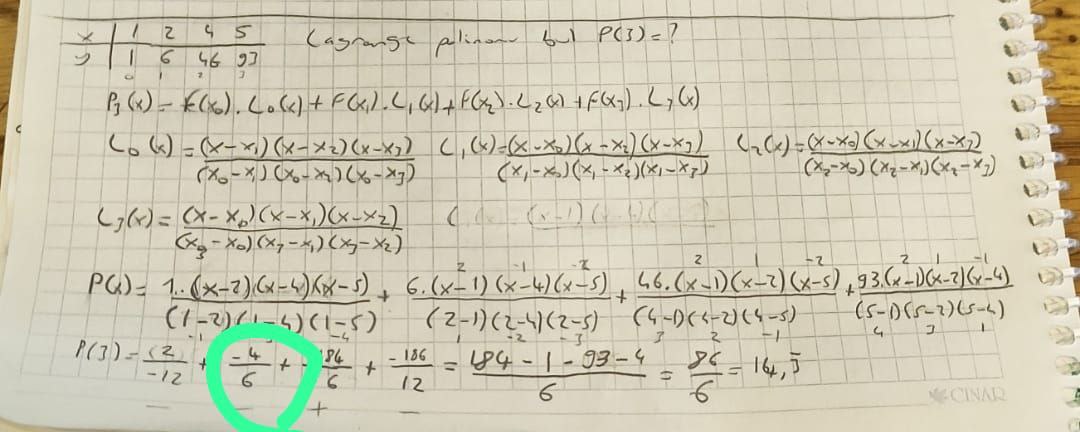 x | 1 2 4 5 Lagrange polinom bul P(3)=?
y | 1 6 46 93
0 1 2 3
P₃(x) = F(x₀).L₀(x) + F(x₁).L₁(x) + F(x₂).L₂(x) + F(x₃).L₃(x)
L₀(x) = (x-x₁)(x-x₂)(x-x₃) / (x₀-x₁)(x₀-x₂)(x₀-x₃) L₁(x) = (x-x₀)(x-x₂)(x-x₃) / (x₁-x₀)(x₁-x₂)(x₁-x₃) L₂(x) = (x-x₀)(x-x₁)(x-x₃) / (x₂-x₀)(x₂-x₁)(x₂-x₃)
L₃(x) = (x-x₀)(x-x₁)(x-x₂) / (x₃-x₀)(x₃-x₁)(x₃-x₂)
2 -1 -2 2 1 -2 2 1 -1
P(x) = 1.(x-2)(x-4)(x-5) / (1-2)(1-4)(1-5) + 6.(x-1)(x-4)(x-5) / (2-1)(2-4)(2-5) + 46.(x-1)(x-2)(x-5) / (4-1)(4-2)(4-5) + 93.(x-1)(x-2)(x-4) / (5-1)(5-2)(5-4)
-1 -4 1 -2 -3 3 2 -1 4 3 1
P(3) = 2/-12 + -4/6 + -184/6 + -186/12 = 184-1-93-4 / 6 = 86/6 = 14,5
- - + -
ÇINAR